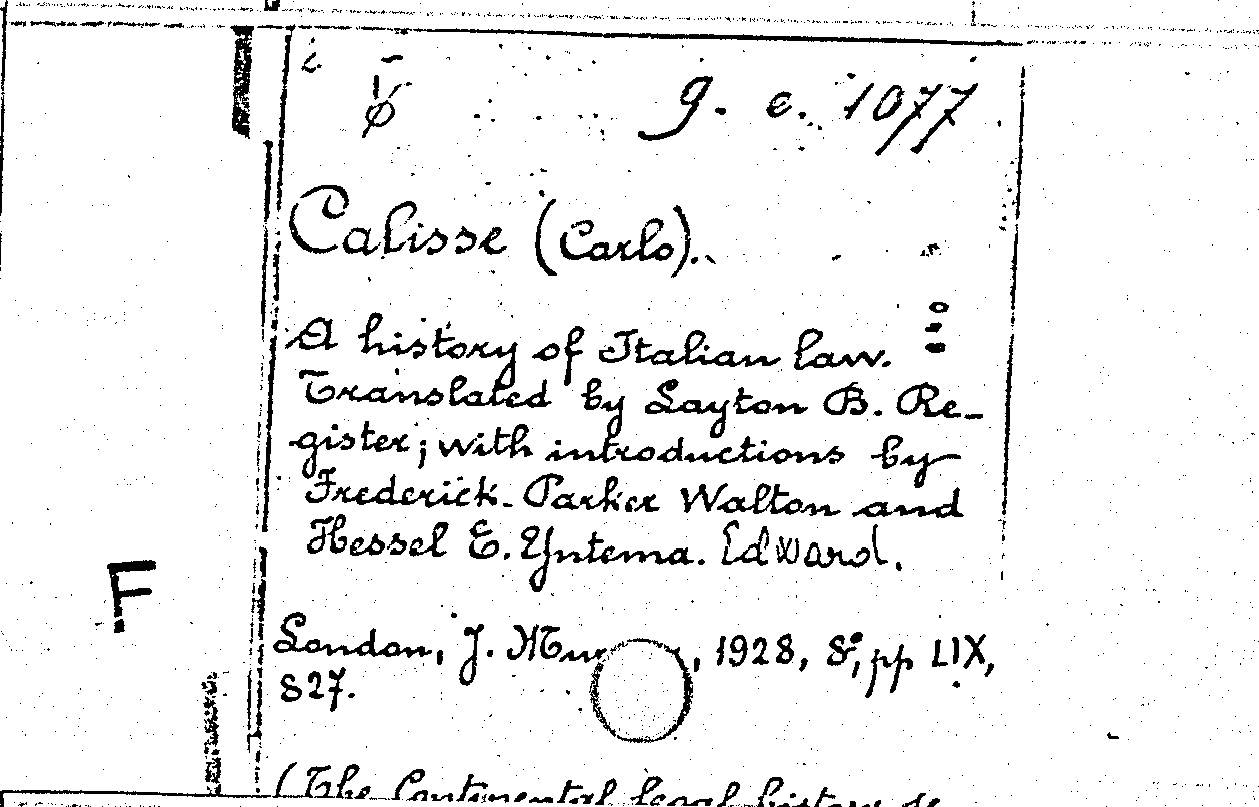 g. e. 1077
Calisse (Carlo).
A history of Italian law.
Translated by Layton B. Re-
gister; with introductions by
Frederick Parker Walton and
Hessel E. Yntema. Edward.
F
London, J. , 1928, 8°, pp LIX,
827.
(The Continental legal history se